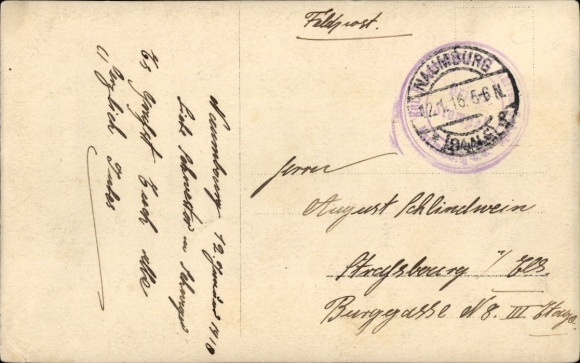 Feldpost.
NAUMBURG
12.1.16. 5-6 N.
(SAALE)
Herrn
August Schlindwein
Strassbourg i/ Els.
Burggasse N 8. III Etage
Naumburg 12. Januar 1916
Liebe Schwester u. Schwager
Es grüsst Euch alle
herzlich